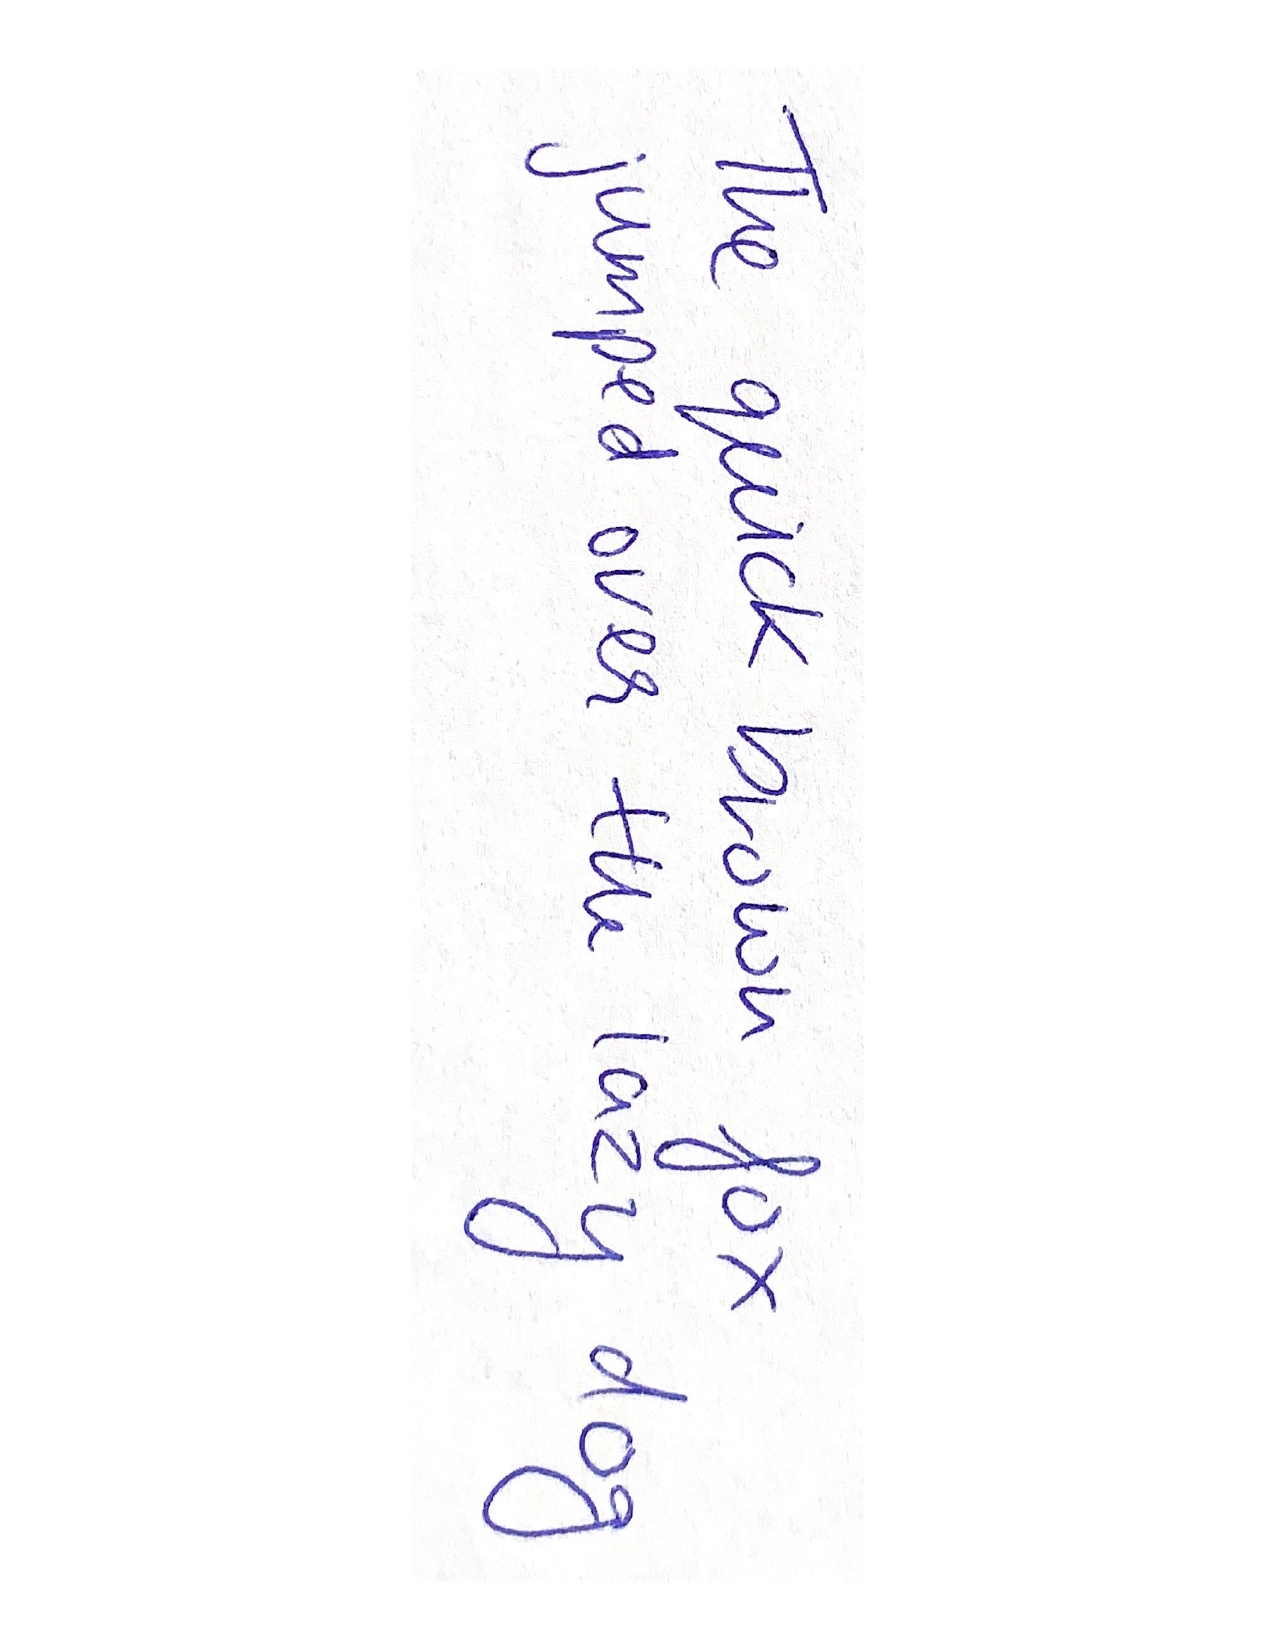 The quick brown fox
jumped over the lazy dog